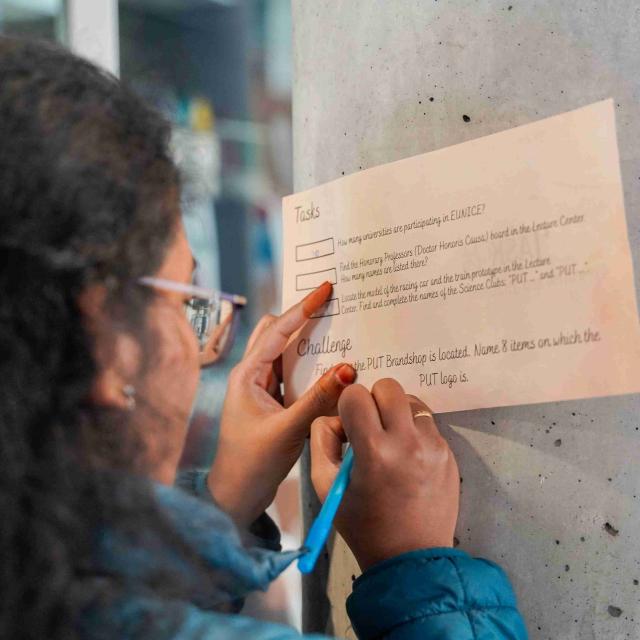 Tasks
How many universities are participating in EUNICE?
Find the Honorary Professors (Doctor Honoris Causa) board in the Lecture Center.
How many names are listed there?
Locate the model of the racing car and the train prototype in the Lecture
Center. Find and complete the names of the Science Clubs: "PUT ..." and "PUT ...".
Challenge
Find the PUT Brandshop is located. Name 8 items on which the
PUT logo is.